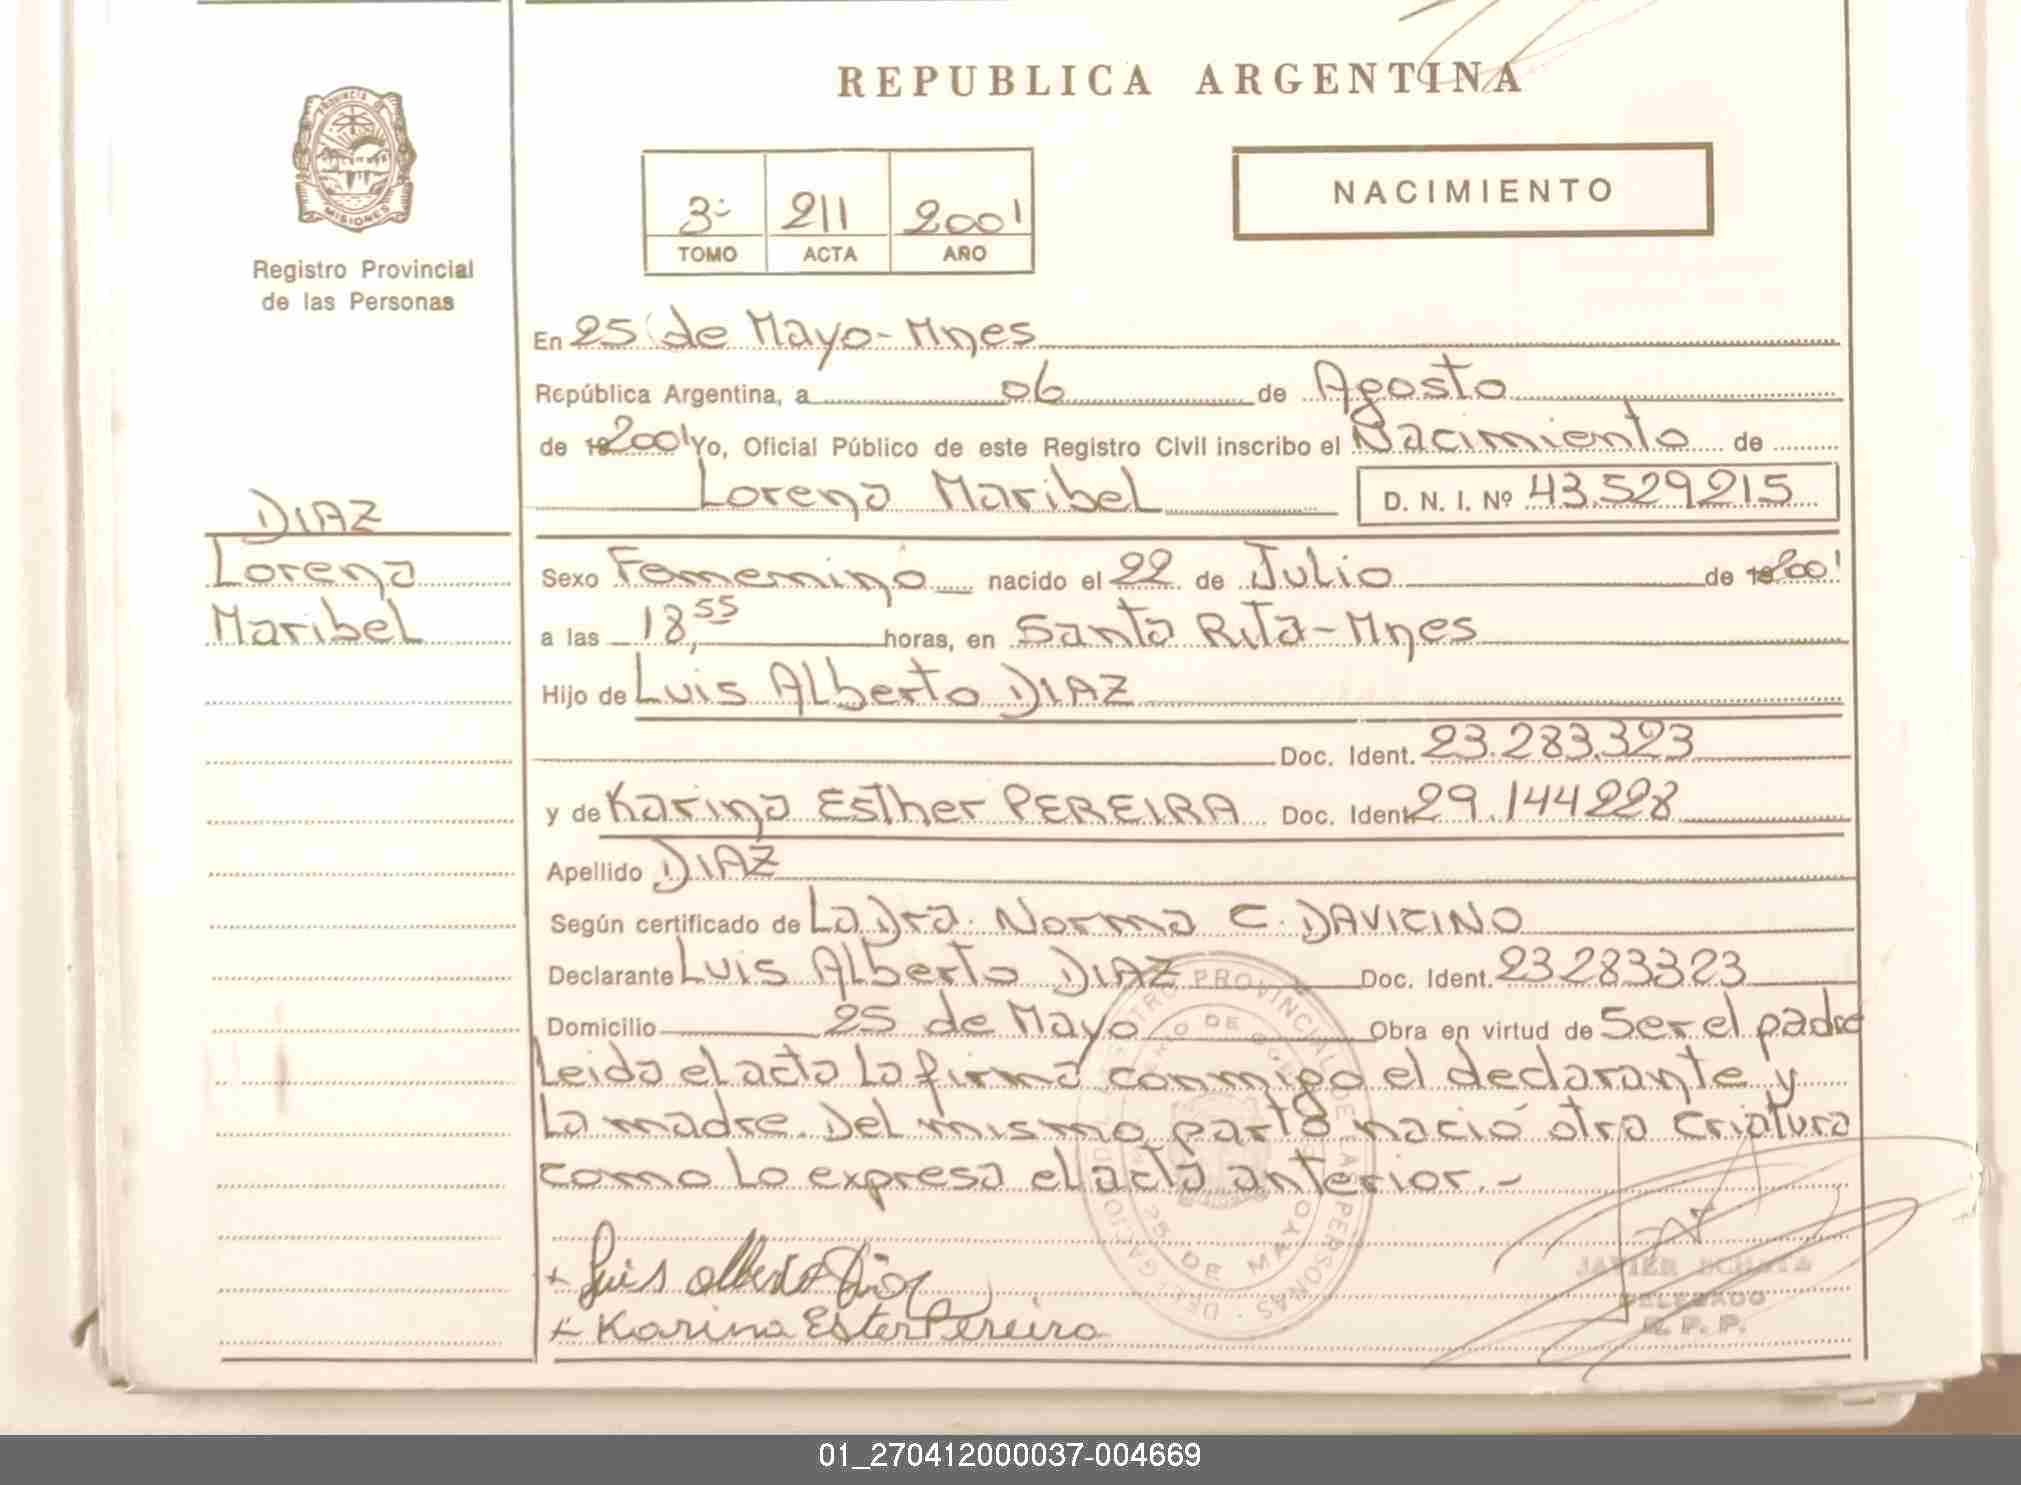 REPUBLICA ARGENTINA
PROVINCIA DE
MISIONES
Registro Provincial
de las Personas
3º 211 2001
TOMO ACTA AÑO
NACIMIENTO
En 25 de Mayo - Mnes
República Argentina, a 06 de Agosto
de 19 2001 Yo, Oficial Público de este Registro Civil inscribo el Nacimiento de
Lorena Maribel D. N. I. Nº 43.529215
DIAZ
Lorena
Maribel
Sexo Fememino nacido el 22 de Julio de 19 2001
a las 18,55 horas, en Santa Rita - Mnes
Hijo de Luis Alberto DIAZ
Doc. Ident. 23.283.323
y de Karina Esther PEREIRA Doc. Ident. 29.144228
Apellido DIAZ
Según certificado de La Dra. Norma C. DAVICINO
Declarante Luis Alberto DIAZ Doc. Ident. 23283323
Domicilio 25 de Mayo Obra en virtud de Ser el padre
Leida el acta la firma conmigo el declarante y
La madre. Del mismo parto nació otra criatura
como lo expresa el acta anterior.-
REGISTRO PROVINCIAL DE LAS PERSONAS
25 DE MAYO
+ Luis Alberto Diaz
+ Karina Ester Pereira
JAVIER
DELEGADO
R. P. P.
01_270412000037-004669